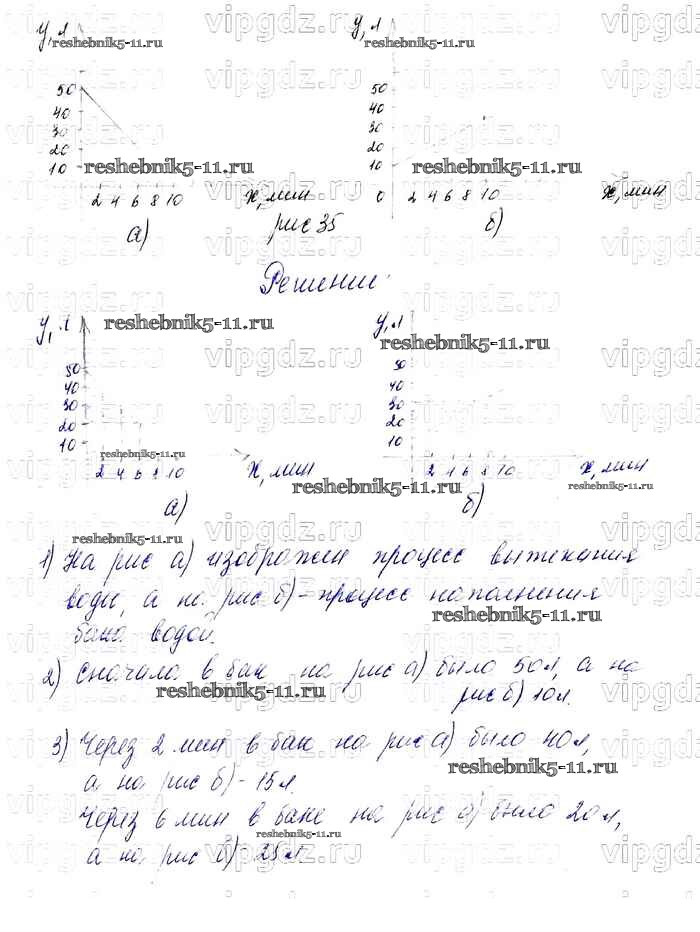 у, л у, л
50 50
40 40
30 30
20 20
10 10
0
2 4 6 8 10 х, мин 2 4 6 8 10 х, мин
а) рис 35 б)
Решение.
у, л у, л
50 50
40 40
30 30
20 20
10 10
2 4 6 8 10 х, мин 2 4 6 8 10 х, мин
а) б)
1) На рис а) изображен процесс вытекания
воды, а на рис б) - процесс наполнения
бака водой.
2) Сначала в бак на рис а) было 50 л, а на
рис б) 10 л.
3) Через 2 мин в бак на рис а) было 40 л,
а на рис б) - 15 л.
Через 6 мин в баке на рис а) было 20 л,
а на рис б) 25 л.
vipgdz.ru
reshebnik5-11.ru